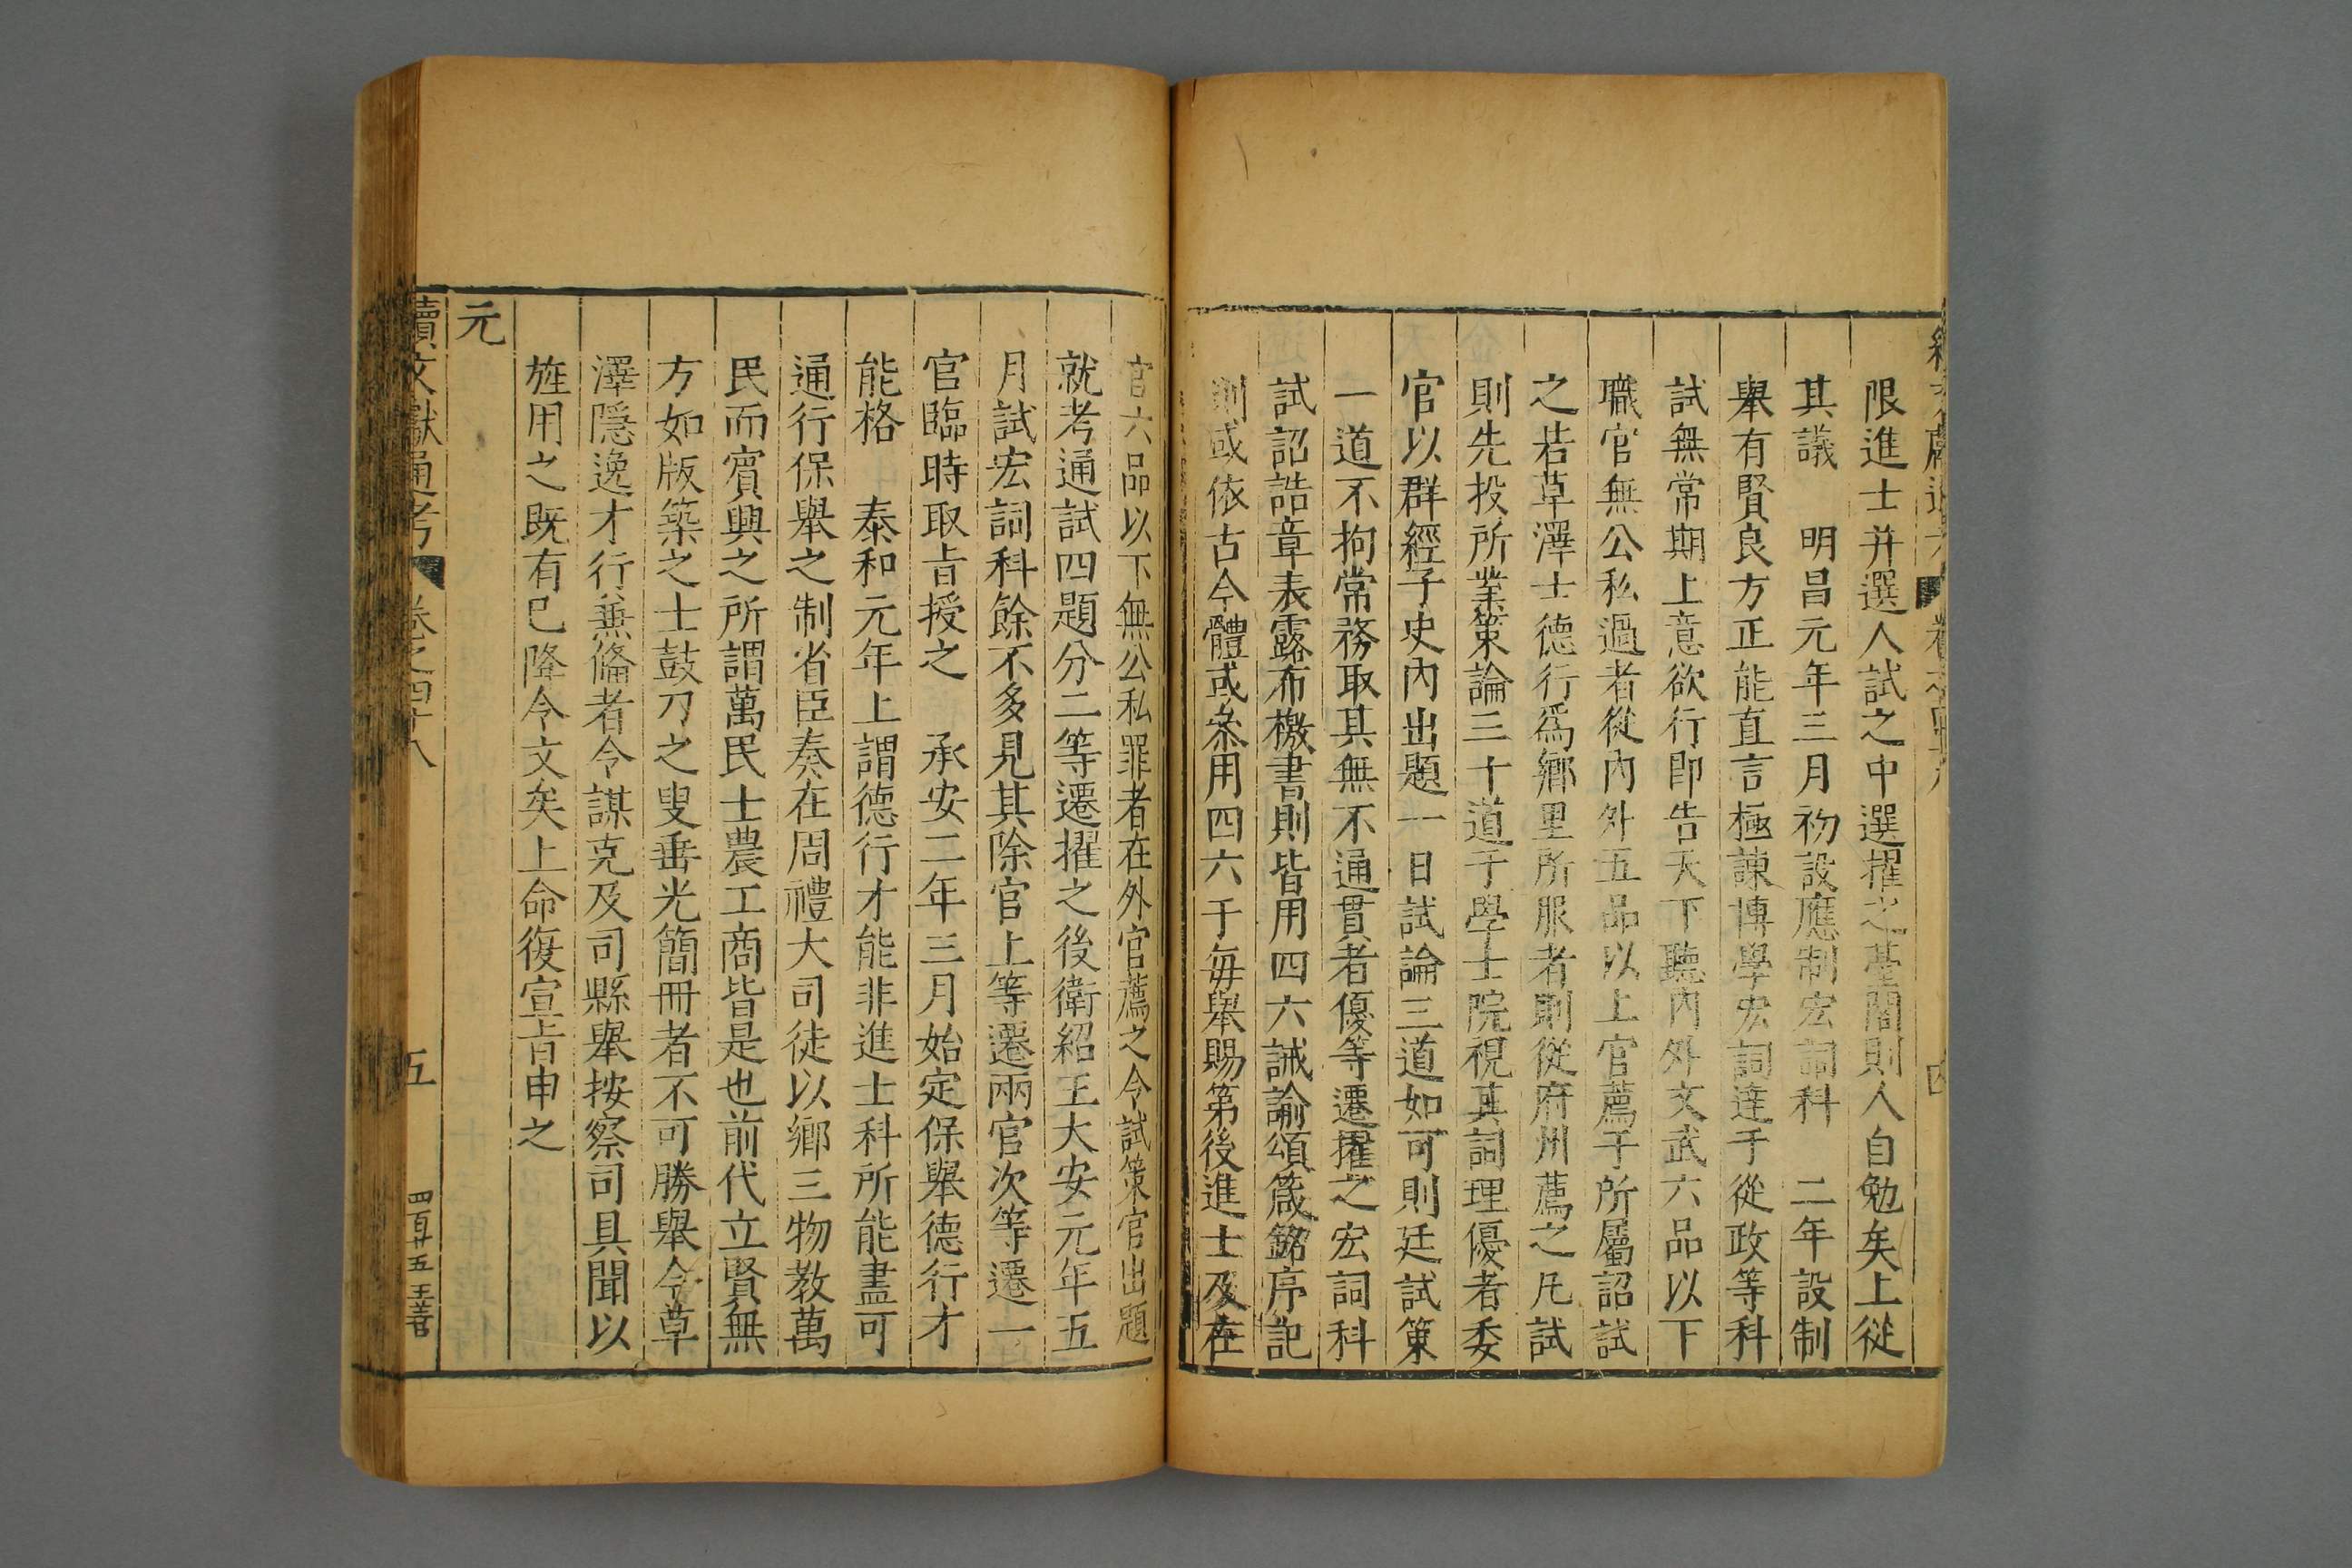 限進士并選人試之中選擢之臺閣則人自勉矣上從
其議　明昌元年三月初設應制宏詞科　二年設制
舉有賢良方正能直言極諫博學宏詞達于從政等科
試無常期上意欲行即告天下聽內外文武六品以下
職官無公私過者從內外五品以上官薦于所屬詔試
之若草澤士德行爲鄉里所服者則從府州薦之凡試
則先投所業策論三十道于學士院視其詞理優者委
官以群經子史內出題一日試論三道如可則廷試策
一道不拘常務取其無不通貫者優等遷擢之宏詞科
試詔誥章表露布檄書則皆用四六誡諭頌箴銘序記
則或依古今體或叅用四六于每舉賜第後進士及在
官六品以下無公私罪者在外官薦之令試策官出題
就考通試四題分二等遷擢之後衛紹王大安元年五
月試宏詞科餘不多見其除官上等遷兩官次等遷一
官臨時取旨授之　承安二年三月始定保舉德行才
能格　泰和元年上謂德行才能非進士科所能盡可
通行保舉之制省臣奏在周禮大司徒以鄉三物教萬
民而賓興之所謂萬民士農工商皆是也前代立賢無
方如版築之士鼓刀之叟垂光簡冊者不可勝舉今草
澤隱逸才行兼備者令謀克及司縣舉按察司具聞以
旌用之既有已降令文矣上命復宣旨申之
元
續文獻通考　卷之四十八　五　四百廿五　王善